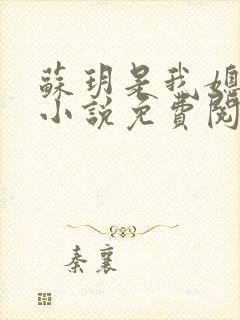 蘇玥是我媳
小說免費閱
秦襄